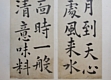 月到天心
處風來水
面時一般
清意味料